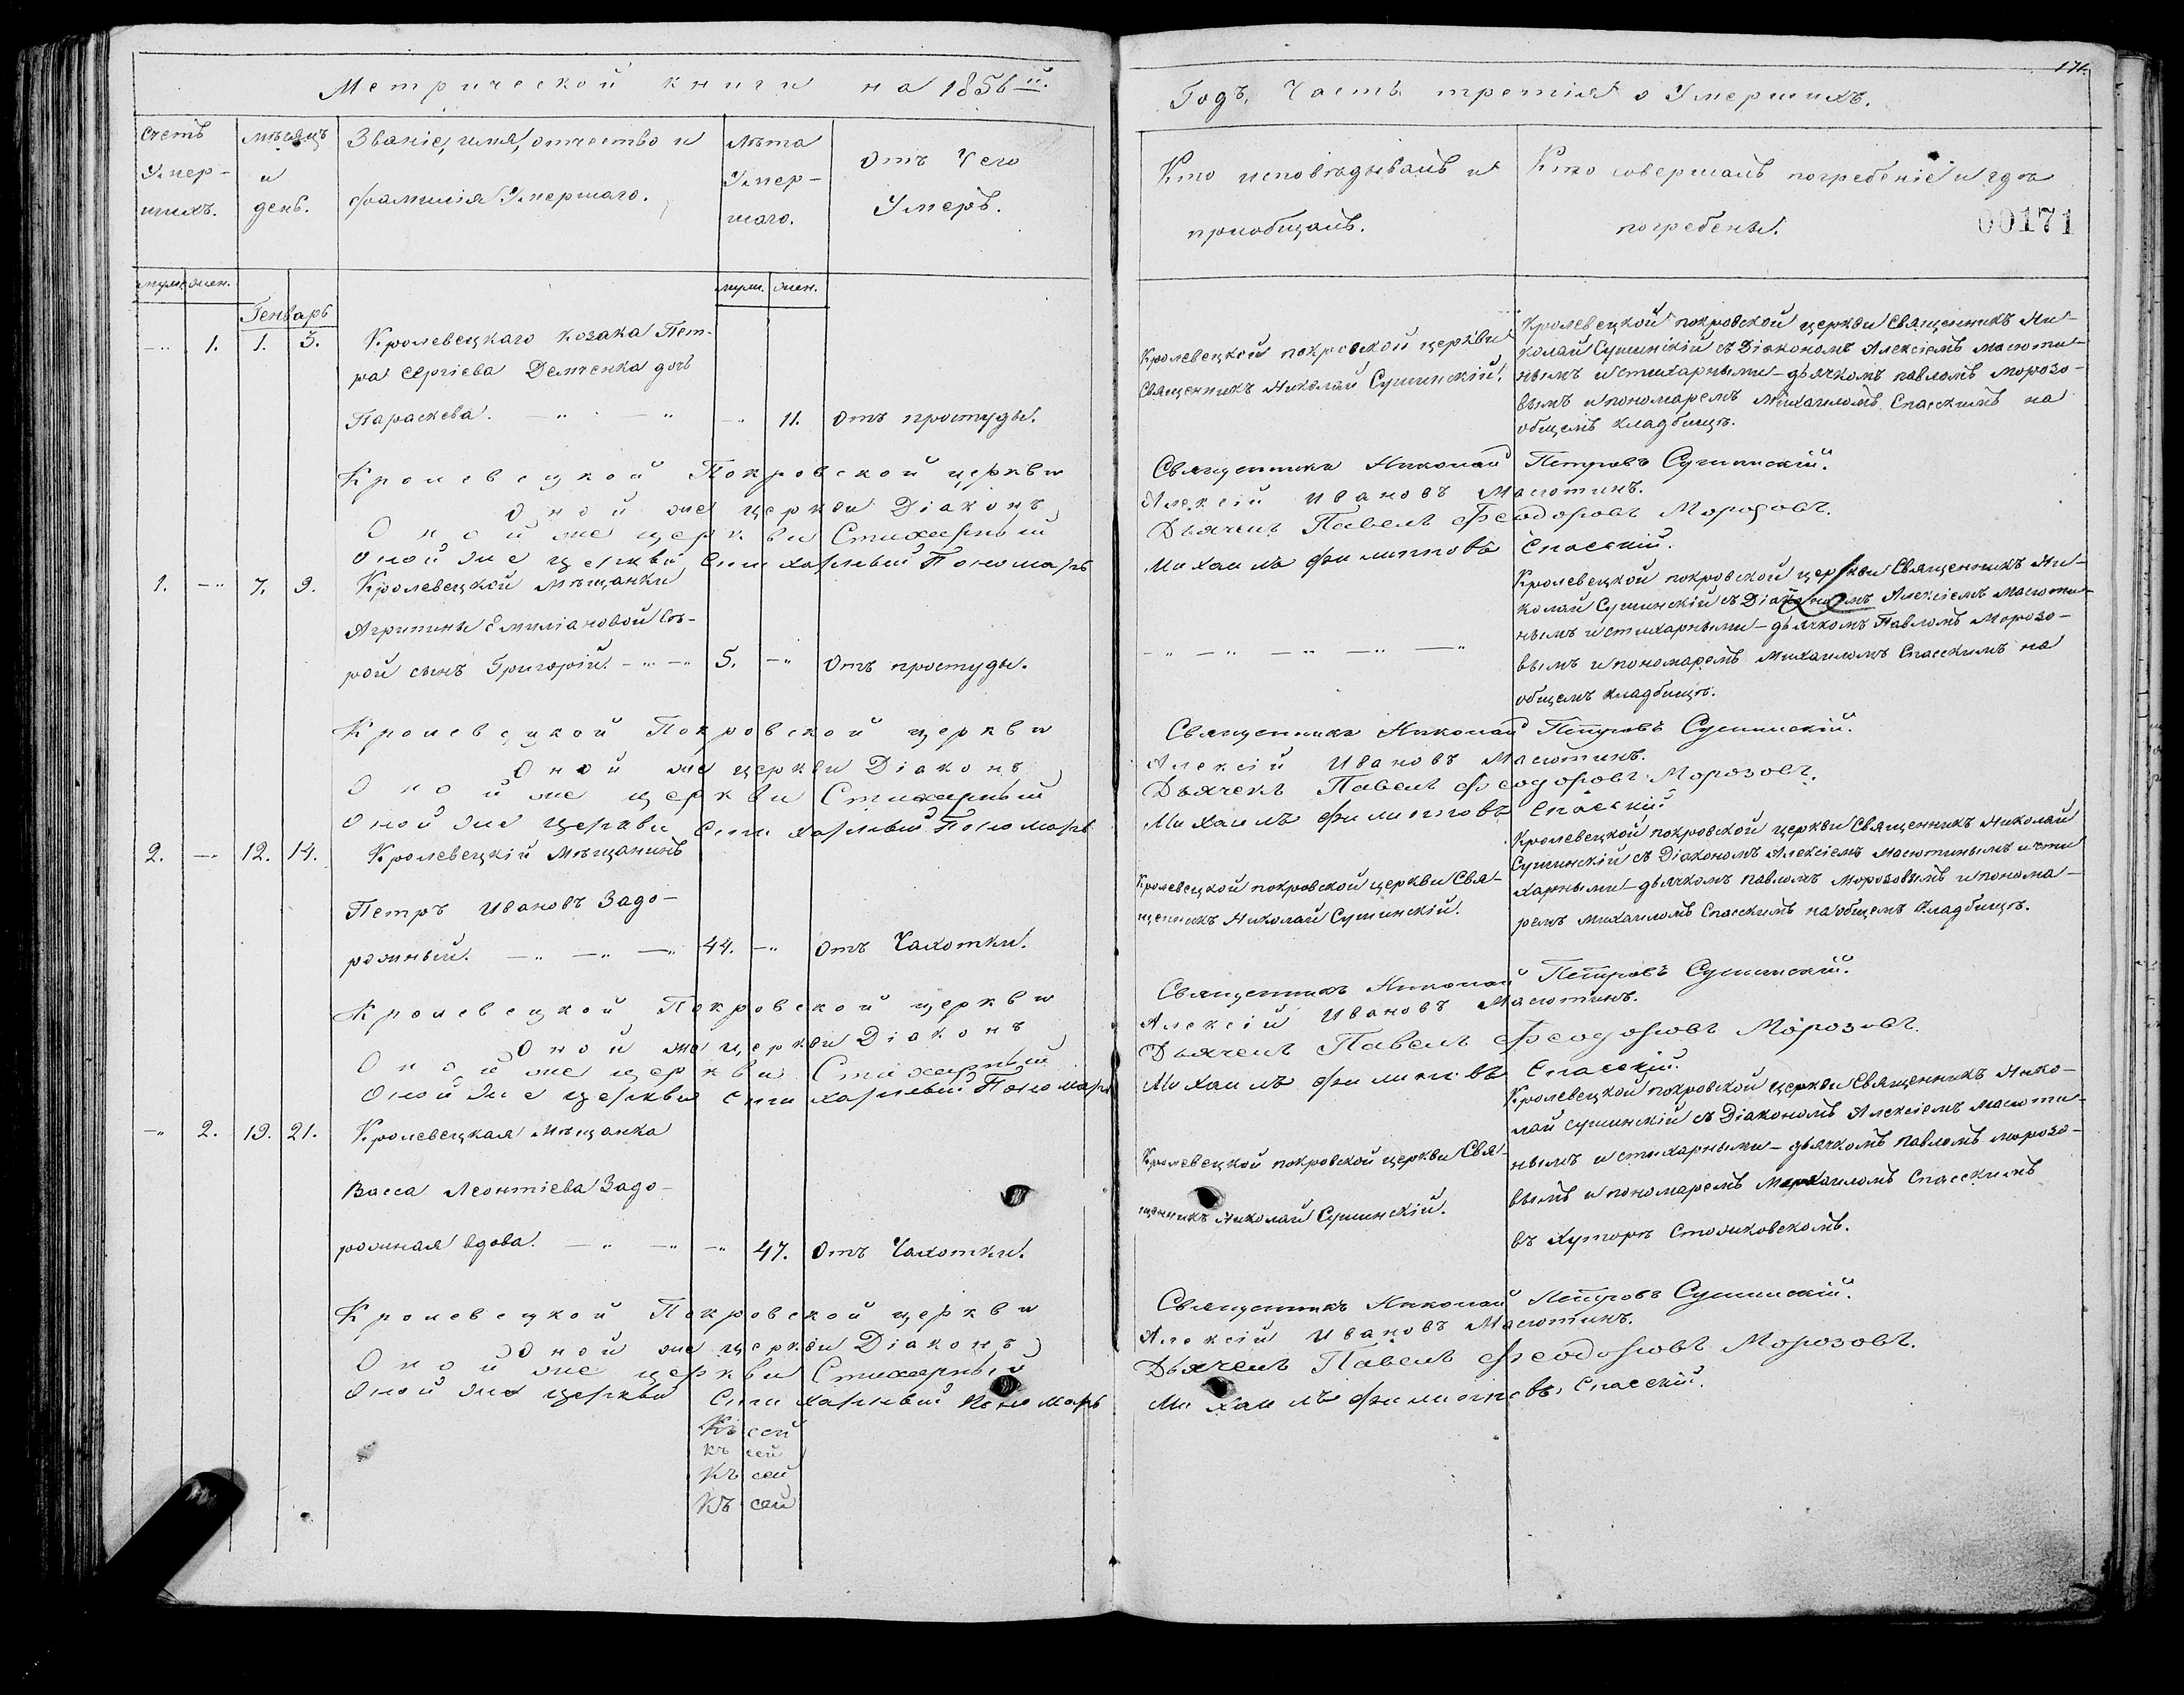 Метрической книги на 1856й.
Годъ, Часть третія о Умершихъ.
171.
00171
Счетъ Умер-шихъ.
мѣсяцъ и день.
Званіе, имя, отчество и фамилія Умершаго.
Лѣта Умер-шаго.
Отъ Чего Умеръ.
Кто исповѣдывалъ и приобщалъ.
Кто совершалъ погребеніе и гдѣ погребены.
муж. жен.
муж. жен.
Генварь
-" 1. 1. 3. Кролевецкаго козака Пет-
ра Сергіева Демченка дочь
Параскева. -" -" -" 11. Отъ простуды.
Кролевецкой покровской церкви
Священникъ Николай Сушинскій.
Кролевецкой покровской церкви Священникъ Ни-
колай Сушинскій съ Діакономъ Алексіемъ Масюти-
нымъ и стихарными - дьячкомъ павломъ Морозо-
вымъ и пономаремъ Михаиломъ Спасскимъ на
общемъ кладбищѣ.
Кролевецкой Покровской церкви Священникъ Николай Петровъ Сушинскій.
Оной же церкви Діаконъ Алексій Ивановъ Масютинъ.
Оной же церкви Стихарный Дьячекъ Павелъ Феодоровъ Морозовъ.
Оной же церкви Стихарный Пономарь Михаилъ Филипповъ Спасскій.
1. -" 7. 9. Кролевецкой Мѣщанки
Агрипины Емиліановой
рой сынъ Григорій. -" -" 5. -" Отъ простуды.
-" -" -" -" -"
Кролевецкой покровской церкви Священникъ Ни-
колай Сушинскій съ Діакономъ Алексіемъ Масюти-
нымъ и стихарными - дьячкомъ Павломъ Морозо-
вымъ и пономаремъ Михаиломъ Спасскимъ на
общемъ кладбищѣ.
Кролевецкой Покровской церкви Священникъ Николай Петровъ Сушинскій.
Оной же церкви Діаконъ Алексій Ивановъ Масютинъ.
Оной же церкви Стихарный Дьячекъ Павелъ Феодоровъ Морозовъ.
Оной же церкви Стихарный Пономарь Михаилъ Филипповъ Спасскій.
2. -" 12. 14. Кролевецкій Мѣщанинъ
Петръ Ивановъ Задо-
рожный. -" -" -" 44. -" Отъ Чахотки.
Кролевецкой покровской церкви Свя-
щенникъ Николай Сушинскій.
Кролевецкой покровской церкви Священникъ Николай
Сушинскій съ Діакономъ Алексіемъ Масютинымъ и сти
харными - дьячкомъ павломъ Морозовымъ и понома-
ремъ Михаиломъ Спасскимъ на общемъ Кладбищѣ.
Кролевецкой Покровской церкви Священникъ Николай Петровъ Сушинскій.
Оной же церкви Діаконъ Алексій Ивановъ Масютинъ.
Оной же церкви Стихарный Дьячекъ Павелъ Феодоровъ Морозовъ.
Оной же церкви Стихарный Пономарь Михаилъ Филиповъ Спасскій.
-" 2. 19. 21. Кролевецкая Мѣщанка
Васса Леонтіева Задо-
рожная вдова. -" -" -" 47. Отъ Чахотки.
Кролевецкой покровской церкви Свя-
щенникъ Николай Сушинскій.
Кролевецкой покровской церкви Священникъ Нико-
лай Сушинскій съ Діакономъ Алексіемъ Масюти-
нымъ и стихарными - дьячкомъ павломъ морозо-
вымъ и пономаремъ Михаиломъ Спасскимъ
въ Хуторѣ
Кролевецкой Покровской церкви Священникъ Николай Петровъ Сушинскій.
Оной же церкви Діаконъ Алексій Ивановъ Масютинъ.
Оной же церкви Стихарный Дьячекъ Павелъ Феодоровъ Морозовъ.
Оной же церкви Стихарный Пономарь Михаилъ Филиповъ Спасскій.
Къ сей
къ сей
Къ сей
Къ сей